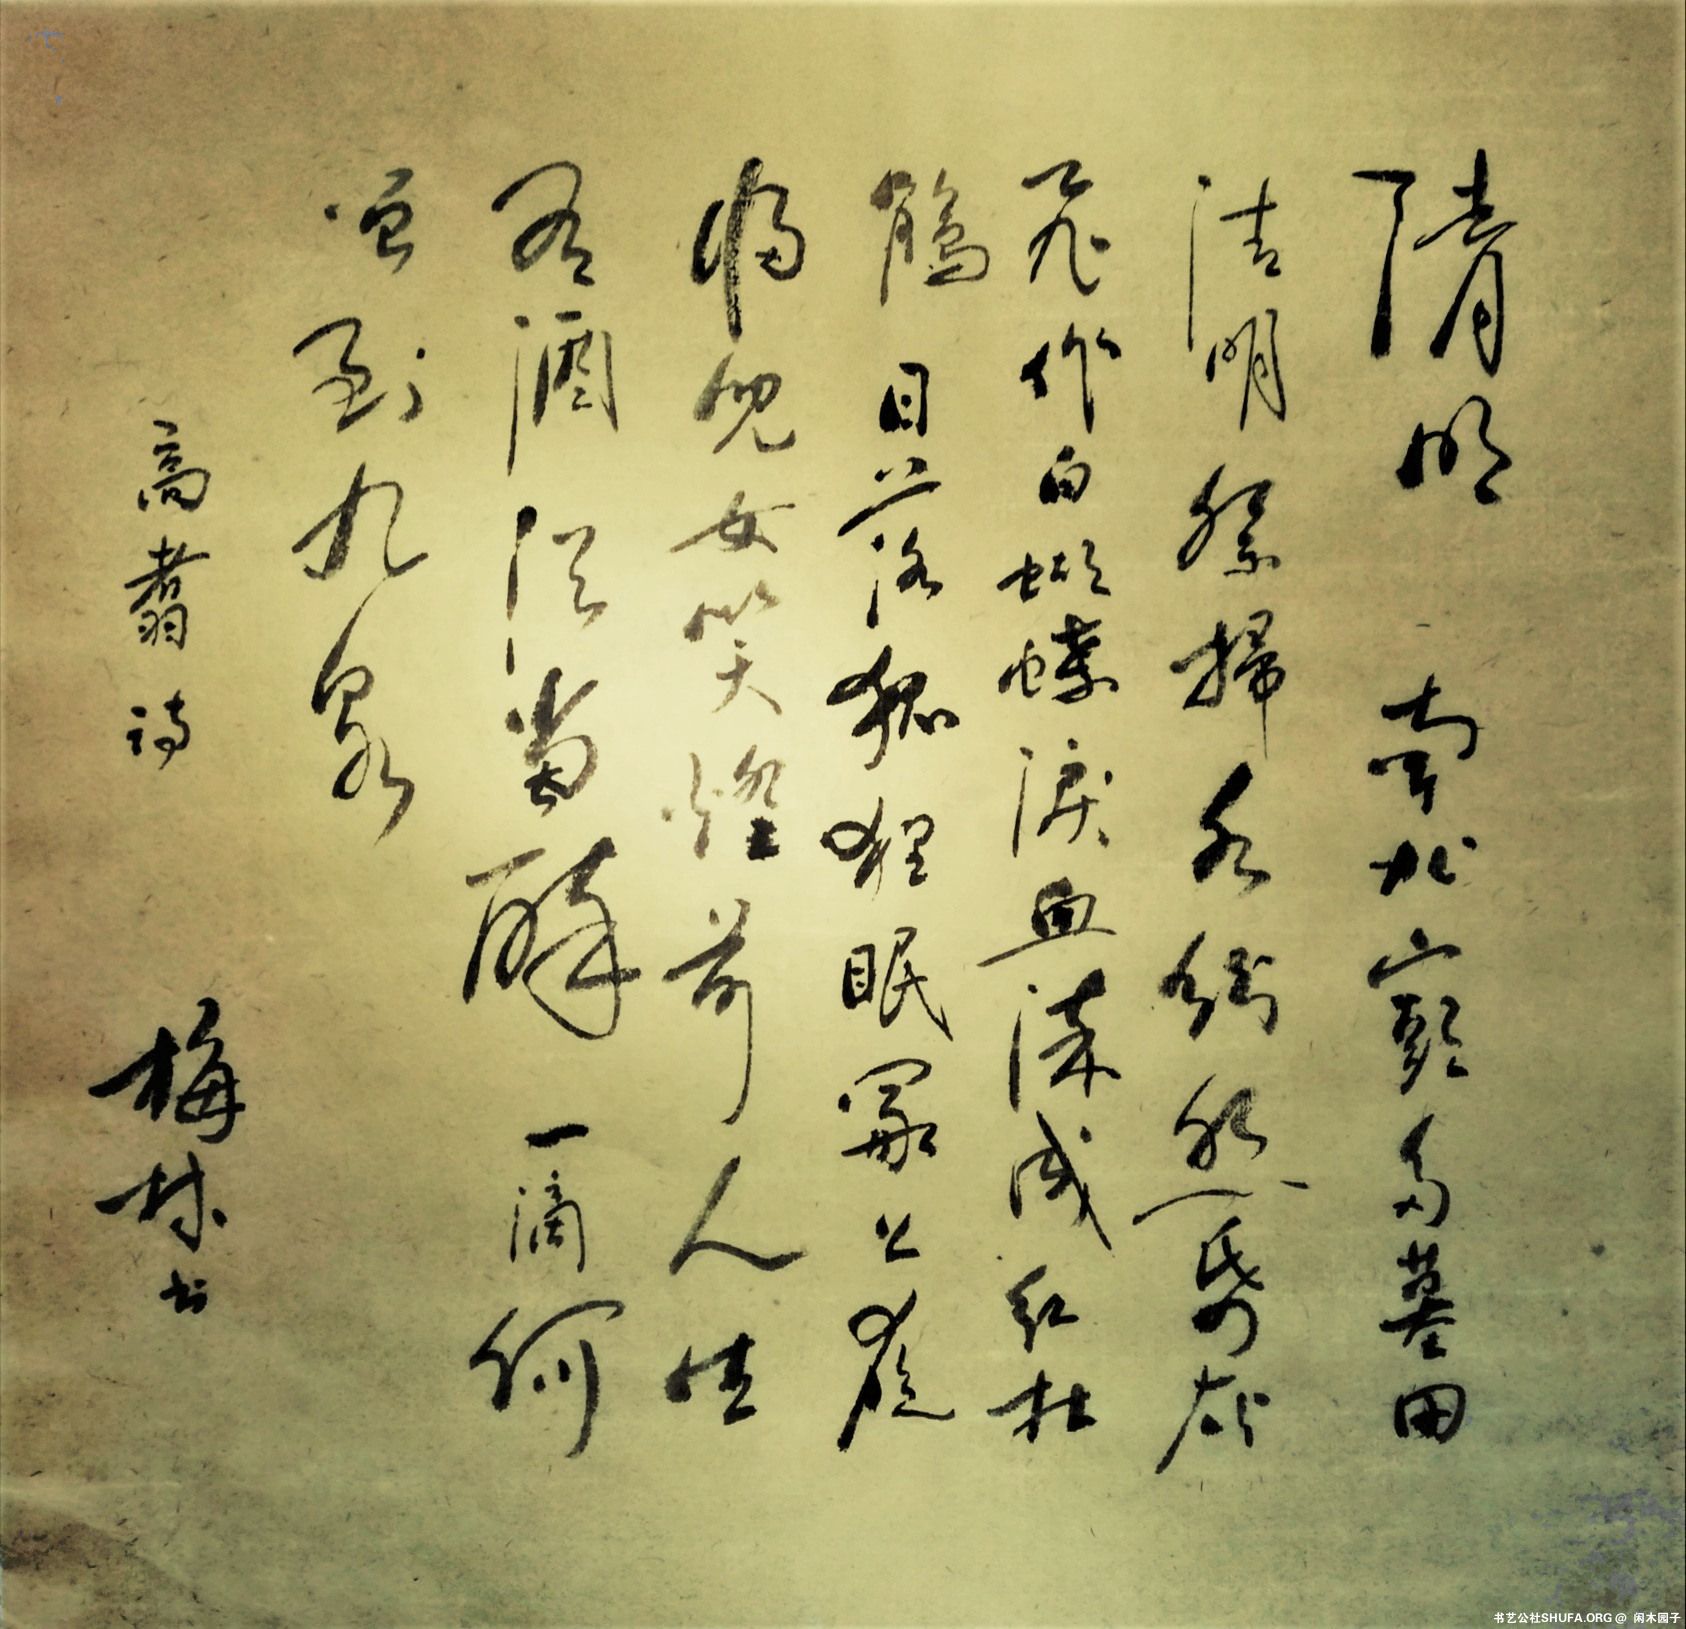 清明 南北山頭多墓田
清明祭掃各紛然紙灰
飛作白蝴蝶淚血染成紅杜
鵑日落狐狸眠冢上夜
歸兒女笑燈前人生
有酒須當醉一滴何
曾到九泉
高翥詩 梅林书
书艺公社SHUFA.ORG @ 闲木园子